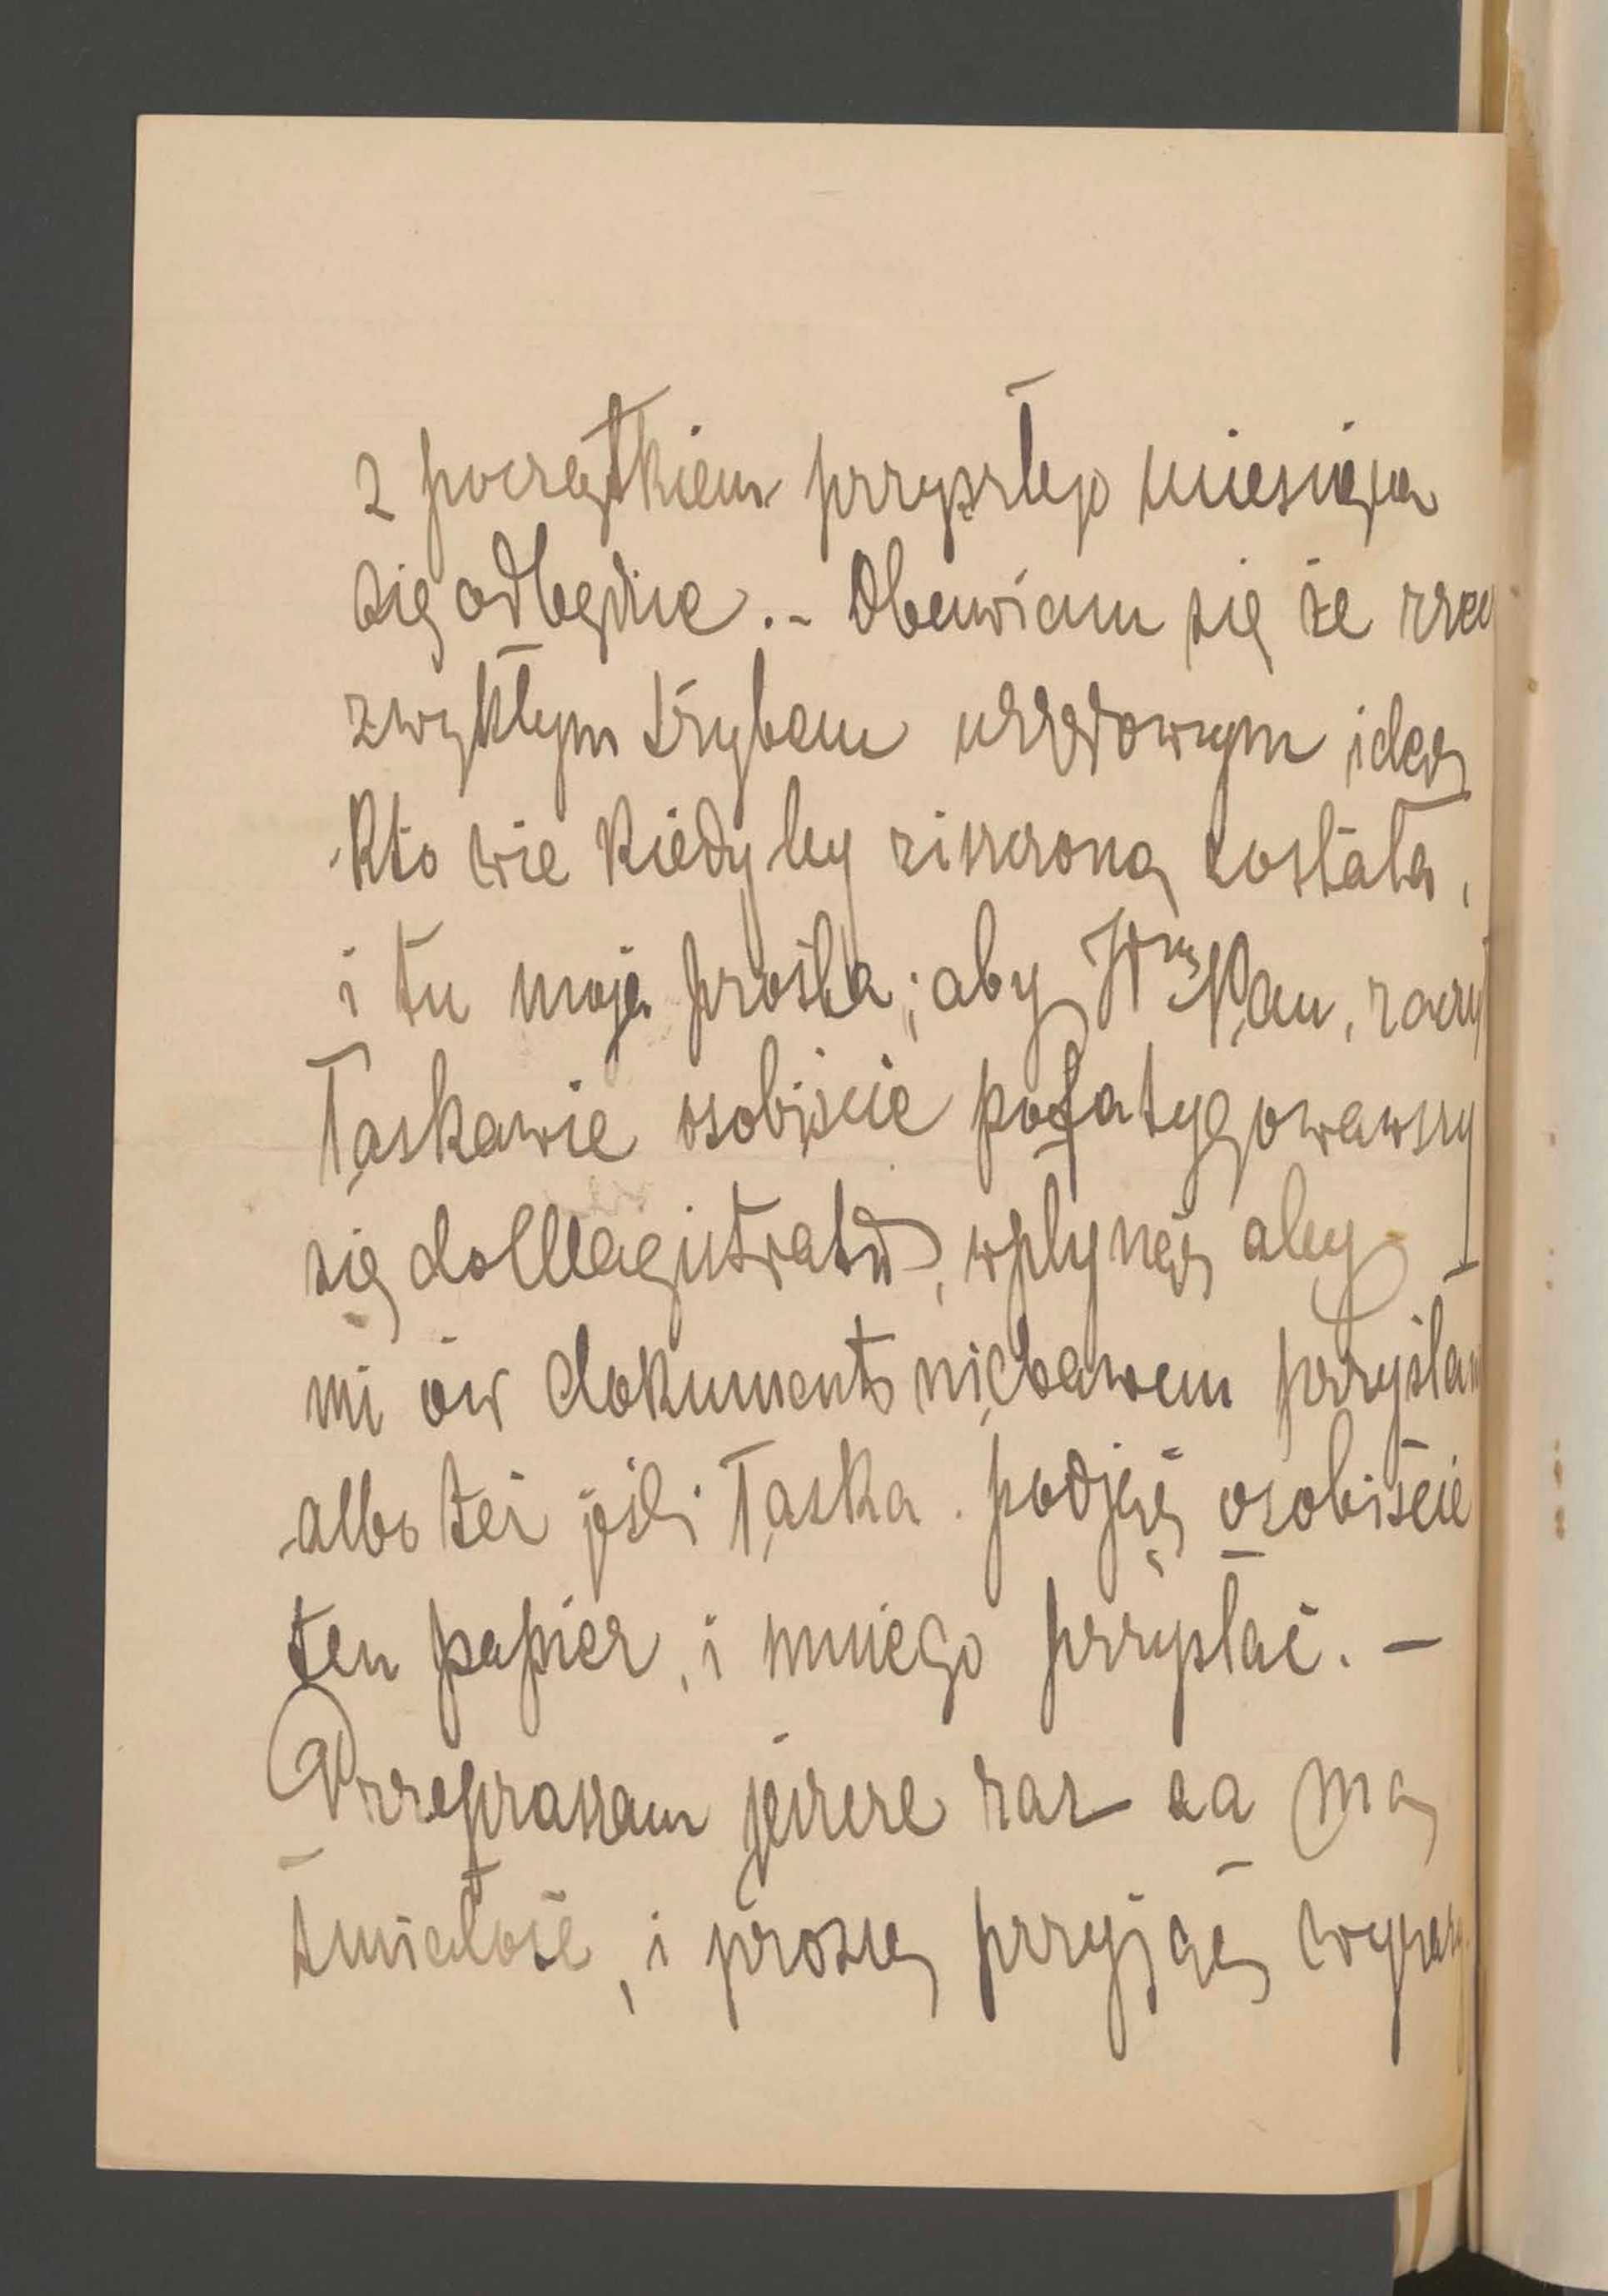 z początkiem przyszłego miesiąca
się odbędzie.- Obawiam się że rzecz
zwykłym trybem urzędowym idąc
kto wie kiedy by ziszczoną została,
i tu moja prośba; aby Wny Pan, raczył
łaskawie osobiście pofatygowawszy
się do Magistratu, wpłynąć aby
mi ów dokument niebawem przysłano
albo też jeśli łaska. podjąć osobiście
ten papier, i mnie go przysłać. —
Przepraszam jeszcze raz za mą
śmiałość, i proszę przyjąć wyrazy